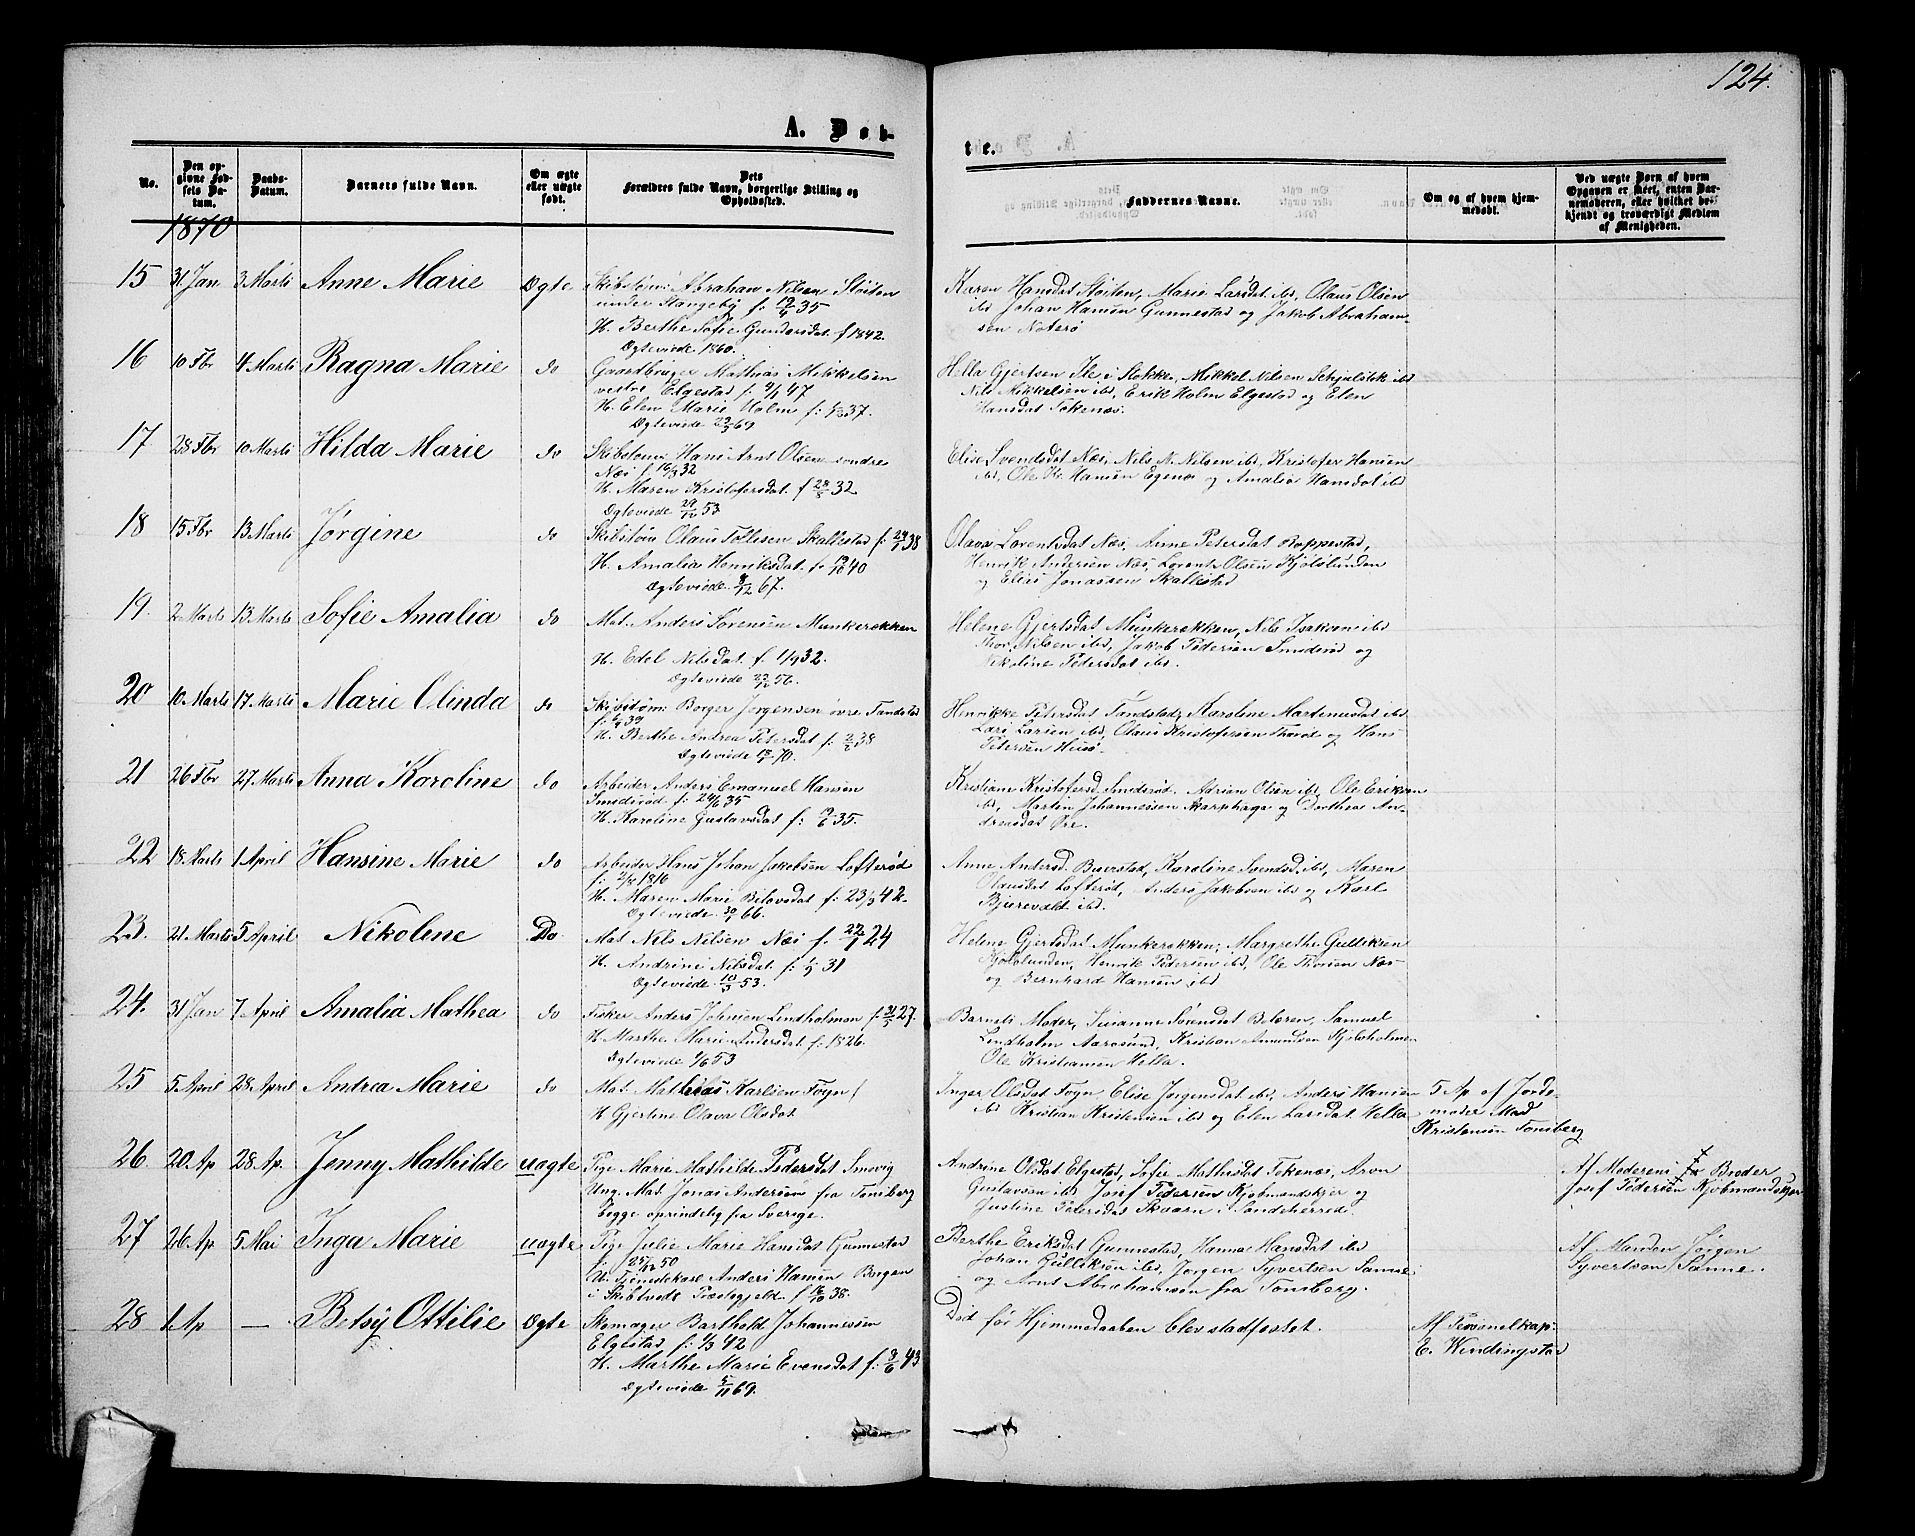 124.
A. Døb-
te.
No.
Den op-
givne Fød-
sels Da-
tum.
Daabs-
Datum.
Barnets fulde Navn.
Om ægte
eller uægte
født.
Dets
Forældres fulde Navn, borgerlige Stilling og
Opholdssted.
Faddernes Navne.
Om og af hvem hjem-
medøbt.
Ved uægte Børn af hvem
Opgaven er skeet, enten Bar-
nemoderen, eller hvilket be-
kjendt og troværdigt Medlem
af Menigheden.
1870
15 31 Jan 3 Marts Anne Marie Ægte
Skibstøm: Abraham Nilsen Støiten
under Stangeby f. 19/5 35
H. Berthe Sofie Gundersdat. f 1842.
Ægteviede 1860.
Karen Hansdat Støiten, Marie Larsdat ibd, Olaus Olsen
ibd Johan Hansen Gunnestad og Jakob Abraham-
sen Nøterø
16 10 Fbr 4 Marts Ragna Marie do
Gaardbruger Mathias Mikkelsen
vestre Elgestad f. 9/1 47
H. Elen Marie Holm f: 37.
Ægteviede 69
Helle Gjertsen Ile i Stokke, Mikkel Nilsen ibd
Nils Mikkelsen ibd, Erik Holm Elgestad og Elen
Hansdat Tokenæs.
17 28 Fbr 10 Marts Hilda Marie do
Skibstøm: Hans Arnt Olsen søndre
Næs f 16/3 32
H. Maren Kristofersdat. f 32
Ægteviede 29/10 53
Elise Svendsdat Næs, Nils N. Nilsen ibd, Kristofer Hansen
ibd, Ole Kr. Hansen Egenæs og Amalia Hansdat ibd
18 15 Fbr 13 Marts Jørgine do
Skibstøm Olaus Tollisen Skallestad f: 24/1 38
H. Amalia Henriksdat. f. 19/10 40
Ægteviede 67.
Olava Lorentsdat Næs, Anne Petersdat Roppestad,
Henrik Andersen Næs, Lorents Olsen Kjølslunden
og Elias Jonassen Skallestad
19. 2 Marts 13 Marts Sofie Amalia do
Mat. Anders Sørensen Munkerøkken
H. Edel Nilsdat. f. 1/9 32.
Ægteviede 56.
Helene Gjertsdat Munkerøkken, Nils Isaksen ibd
Thor Nilsen ibd, Jakob Pedersen Smiderød og
Nikoline Pedersdat ibd.
20 10 Marts 17 Marts Marie Olinda do
Skibstøm: Borger Jørgensen øvre Tandstad
f: 39
H. Berthe Andrea Petersdat f: 2/6 38
Ægteviede 70.
Henrikke Petersdat Tandstad, Karoline Martinusdat ibd
Lars Larsen ibd, Olaus Kristofersen og Hans
Petersen Husø
21 26 Fbr 27 Marts Anna Karoline do
Arbeider Anders Emanuel Hansen
Smidsrød f: 24/6 35
H. Karoline Gustavsdat f: 35.
Kristiane Kristofersd Smiderød. Adrian Olsen ibd, Ole Eriksen
ibd, Martin Johannessen Skarphaga og Dorthea An-
dreasdat Øre.
22 18 Marts 1 April Hansine Marie do
Arbeider Hans Johan Jakobsen Lofterød
f: 1816
H. Maren Marie f: 23/3 42
Ægteviede 66.
Anne Andersd. Buerstad, Karoline Svendsd. ibd, Maren
Olausdat Lofterød, Anders Jakobsen ibd og Karl
ibd.
23. 21 Marts 5 April Nikolene Do
Mat Nils Nilsen Næs f. 22/1 24
H. Andrine Nilsdat. f: 31
Ægteviede 10/3 53.
Helene Gjertsdat Munkerøkken, Margrethe Gulliksen
Kjølslunden, Henrik Pedersen ibd, Ole Thorsen Næs
og Bernhard Hansen ibd
24. 31 Jan 7 April Amalia Mathea do
Fisker Anders Johnsen Lindholmen f: 31/5 27.
H. Marthe Marie Andersdat f: 1826.
Ægteviede 53
Barnets Moder, Susanne Sørensdat Bolæren, Samuel
Lindholm Aarøsund, Kristian Amundsen
Ole Kristiansen Vella.
25 5 April 28 April Andrea Marie do
Mat. Mathias Karlsen Fogn/
H Gjertine Olava Olsdat
Inger Olsdat Fogn Elise Jørgensdat ibd, Anders Hansen
ibd Kristian Kristensen ibd og Elen Larsdat Vella
5 Ap af Jorde-
moder Mad
Kristensen Tønsberg
26 20 Ap 28 Ap. Jenny Mathilde uægte
Pige Marie Mathilde Pedersdat Smøvig
Ung. Mat. Jonas Andersen fra Tønsberg
begge oprindelig fra Sverige.
Andrine Olsdat Elgestad, Sofie Mathisdat Tokenæs, Aron
Gustavsen ibd Josef Pedersen Kjøbmandskjær og
Justine Pedersdat Skaarn i Sandeherred.
Af Moderens Broder
Josef Pedersen Kjøbmandskjær
27 26 Ap 5 Mai Inga Marie uægte
Pige Julie Marie Hansdat Gunnestad
f: 25/12 50
U. Tømdekarl Anders Hansen Borgen
i Skibtvedt Præstegjeld f 38.
Berthe Eriksdat Gunnestad, Hanna Hansdat ibd
Johan Gulliksen ibd, Jørgen Syvertsen Sanne
og Arnt Abrahamsen fra Tønsberg.
Af Manden Jørgen
Syvertsen Sanne.
28 1 Ap — Betsy Ottilie Ægte
Skomager Barthold Johannesen
Elgestad f: 1/3 42
H. Marthe Marie Evensdat f: 8/6 43
Ægteviede 5/11 69.
Død før Hjemmedaaben blev stadfæstet.
Af Personelkap:
E. Windingstad